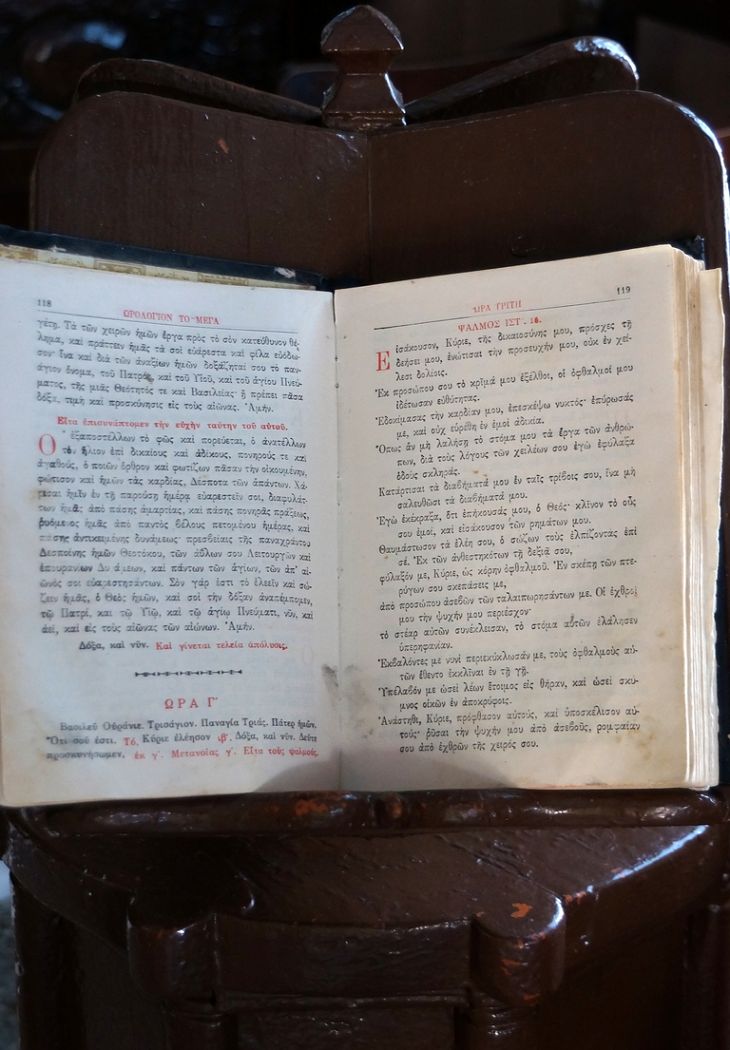 118
ΩΡΟΛΟΓΙΟΝ ΤΟ ΜΕΓΑ
γέτη. Τὰ τῶν χειρῶν ἡμῶν ἔργα πρὸς τὸ σὸν κατεύθυνον θέ-
λημα, καὶ πράττειν ἡμᾶς τά σοι εὐάρεστα καὶ φίλα εὐόδω-
σον· ἵνα καὶ διὰ τῶν ἀναξίων ἡμῶν δοξάζηταί σου τὸ παν-
άγιον ὄνομα, τοῦ Πατρὸς, καὶ τοῦ Υἱοῦ, καὶ τοῦ ἁγίου Πνεύ-
ματος, τῆς μιᾶς Θεότητός τε καὶ Βασιλείας· ᾗ πρέπει πᾶσα
δόξα, τιμὴ καὶ προσκύνησις εἰς τοὺς αἰῶνας. Ἀμήν.
Εἶτα ἐπισυνάπτομεν τὴν εὐχὴν ταύτην τοῦ αὐτοῦ.
Ὁ ἐξαποστέλλων τὸ φῶς καὶ πορεύεται, ὁ ἀνατέλλων
τὸν ἥλιον ἐπὶ δικαίους καὶ ἀδίκους, πονηρούς τε καὶ
ἀγαθούς, ὁ ποιῶν ὄρθρον καὶ φωτίζων πᾶσαν τὴν οἰκουμένην,
φώτισον καὶ ἡμῶν τὰς καρδίας, Δέσποτα τῶν ἁπάντων. Χά-
ρισαι ἡμῖν ἐν τῇ παρούσῃ ἡμέρᾳ εὐαρεστεῖν σοι, διαφυλάτ-
των ἡμᾶς ἀπὸ πάσης ἁμαρτίας, καὶ πάσης πονηρᾶς πράξεως,
ῥυόμενος ἡμᾶς ἀπὸ παντὸς βέλους πετομένου ἡμέρας, καὶ
πάσης ἀντικειμένης δυνάμεως· πρεσβείαις τῆς παναχράντου
Δεσποίνης ἡμῶν Θεοτόκου, τῶν ἀΰλων σου Λειτουργῶν καὶ
ἐπουρανίων Δυνάμεων, καὶ πάντων τῶν ἁγίων, τῶν ἀπ' αἰ-
ῶνός σοι εὐαρεστησάντων. Σὸν γάρ ἐστι τὸ ἐλεεῖν καὶ σώ-
ζειν ἡμᾶς, ὁ Θεὸς ἡμῶν, καὶ σοὶ τὴν δόξαν ἀναπέμπομεν,
τῷ Πατρί, καὶ τῷ Υἱῷ, καὶ τῷ ἁγίῳ Πνεύματι, νῦν, καὶ
ἀεί, καὶ εἰς τοὺς αἰῶνας τῶν αἰώνων. Ἀμήν.
Δόξα, καὶ νῦν. Καὶ γίνεται τελεία ἀπόλυσις.
ΩΡΑ Γ'
Βασιλεῦ Οὐράνιε. Τρισάγιον. Παναγία Τριάς. Πάτερ ἡμῶν.
Ὅτι σοῦ ἐστι. Τὸ, Κύριε ἐλέησον ιβ'. Δόξα, καὶ νῦν. Δεῦτε
προσκυνήσωμεν, ἐκ γ'. Μετανοίας γ'. Εἶτα τοὺς ψαλμούς.
119
ΩΡΑ ΤΡΙΤΗ
ΨΑΛΜΟΣ ΙΣΤ'. 16.
Εἰσάκουσον, Κύριε, τῆς δικαιοσύνης μου, πρόσχες τῇ
δεήσει μου, ἐνώτισαι τὴν προσευχήν μου, οὐκ ἐν χεί-
λεσι δολίοις.
Ἐκ προσώπου σου τὸ κρῖμά μου ἐξέλθοι, οἱ ὀφθαλμοί μου
ἰδέτωσαν εὐθύτητας.
Ἐδοκίμασας τὴν καρδίαν μου, ἐπεσκέψω νυκτός· ἐπύρωσάς
με, καὶ οὐχ εὑρέθη ἐν ἐμοὶ ἀδικία.
Ὅπως ἂν μὴ λαλήσῃ τὸ στόμα μου τὰ ἔργα τῶν ἀνθρώ-
πων, διὰ τοὺς λόγους τῶν χειλέων σου ἐγὼ ἐφύλαξα
ὁδοὺς σκληράς.
Κατάρτισαι τὰ διαβήματά μου ἐν ταῖς τρίβοις σου, ἵνα μὴ
σαλευθῶσι τὰ διαβήματά μου.
Ἐγὼ ἐκέκραξα, ὅτι ἐπήκουσάς μου, ὁ Θεός· κλῖνον τὸ οὖς
σου ἐμοί, καὶ εἰσάκουσον τῶν ῥημάτων μου.
Θαυμάστωσον τὰ ἐλέη σου, ὁ σώζων τοὺς ἐλπίζοντας ἐπὶ
σέ. Ἐκ τῶν ἀνθεστηκότων τῇ δεξιᾷ σου,
φύλαξόν με, Κύριε, ὡς κόρην ὀφθαλμοῦ. Ἐν σκέπῃ τῶν πτε-
ρύγων σου σκεπάσεις με,
ἀπὸ προσώπου ἀσεβῶν τῶν ταλαιπωρησάντων με. Οἱ ἐχθροί
μου τὴν ψυχήν μου περιέσχον·
τὸ στέαρ αὐτῶν συνέκλεισαν, τὸ στόμα αὐτῶν ἐλάλησεν
ὑπερηφανίαν.
Ἐκβαλόντες με νυνὶ περιεκύκλωσάν με, τοὺς ὀφθαλμοὺς αὐ-
τῶν ἔθεντο ἐκκλῖναι ἐν τῇ γῇ.
Ὑπέλαβόν με ὡσεὶ λέων ἕτοιμος εἰς θήραν, καὶ ὡσεὶ σκύ-
μνος οἰκῶν ἐν ἀποκρύφοις.
Ἀνάστηθι, Κύριε, πρόφθασον αὐτούς, καὶ ὑποσκέλισον αὐ-
τούς· ῥῦσαι τὴν ψυχήν μου ἀπὸ ἀσεβοῦς, ῥομφαίαν
σου ἀπὸ ἐχθρῶν τῆς χειρός σου.